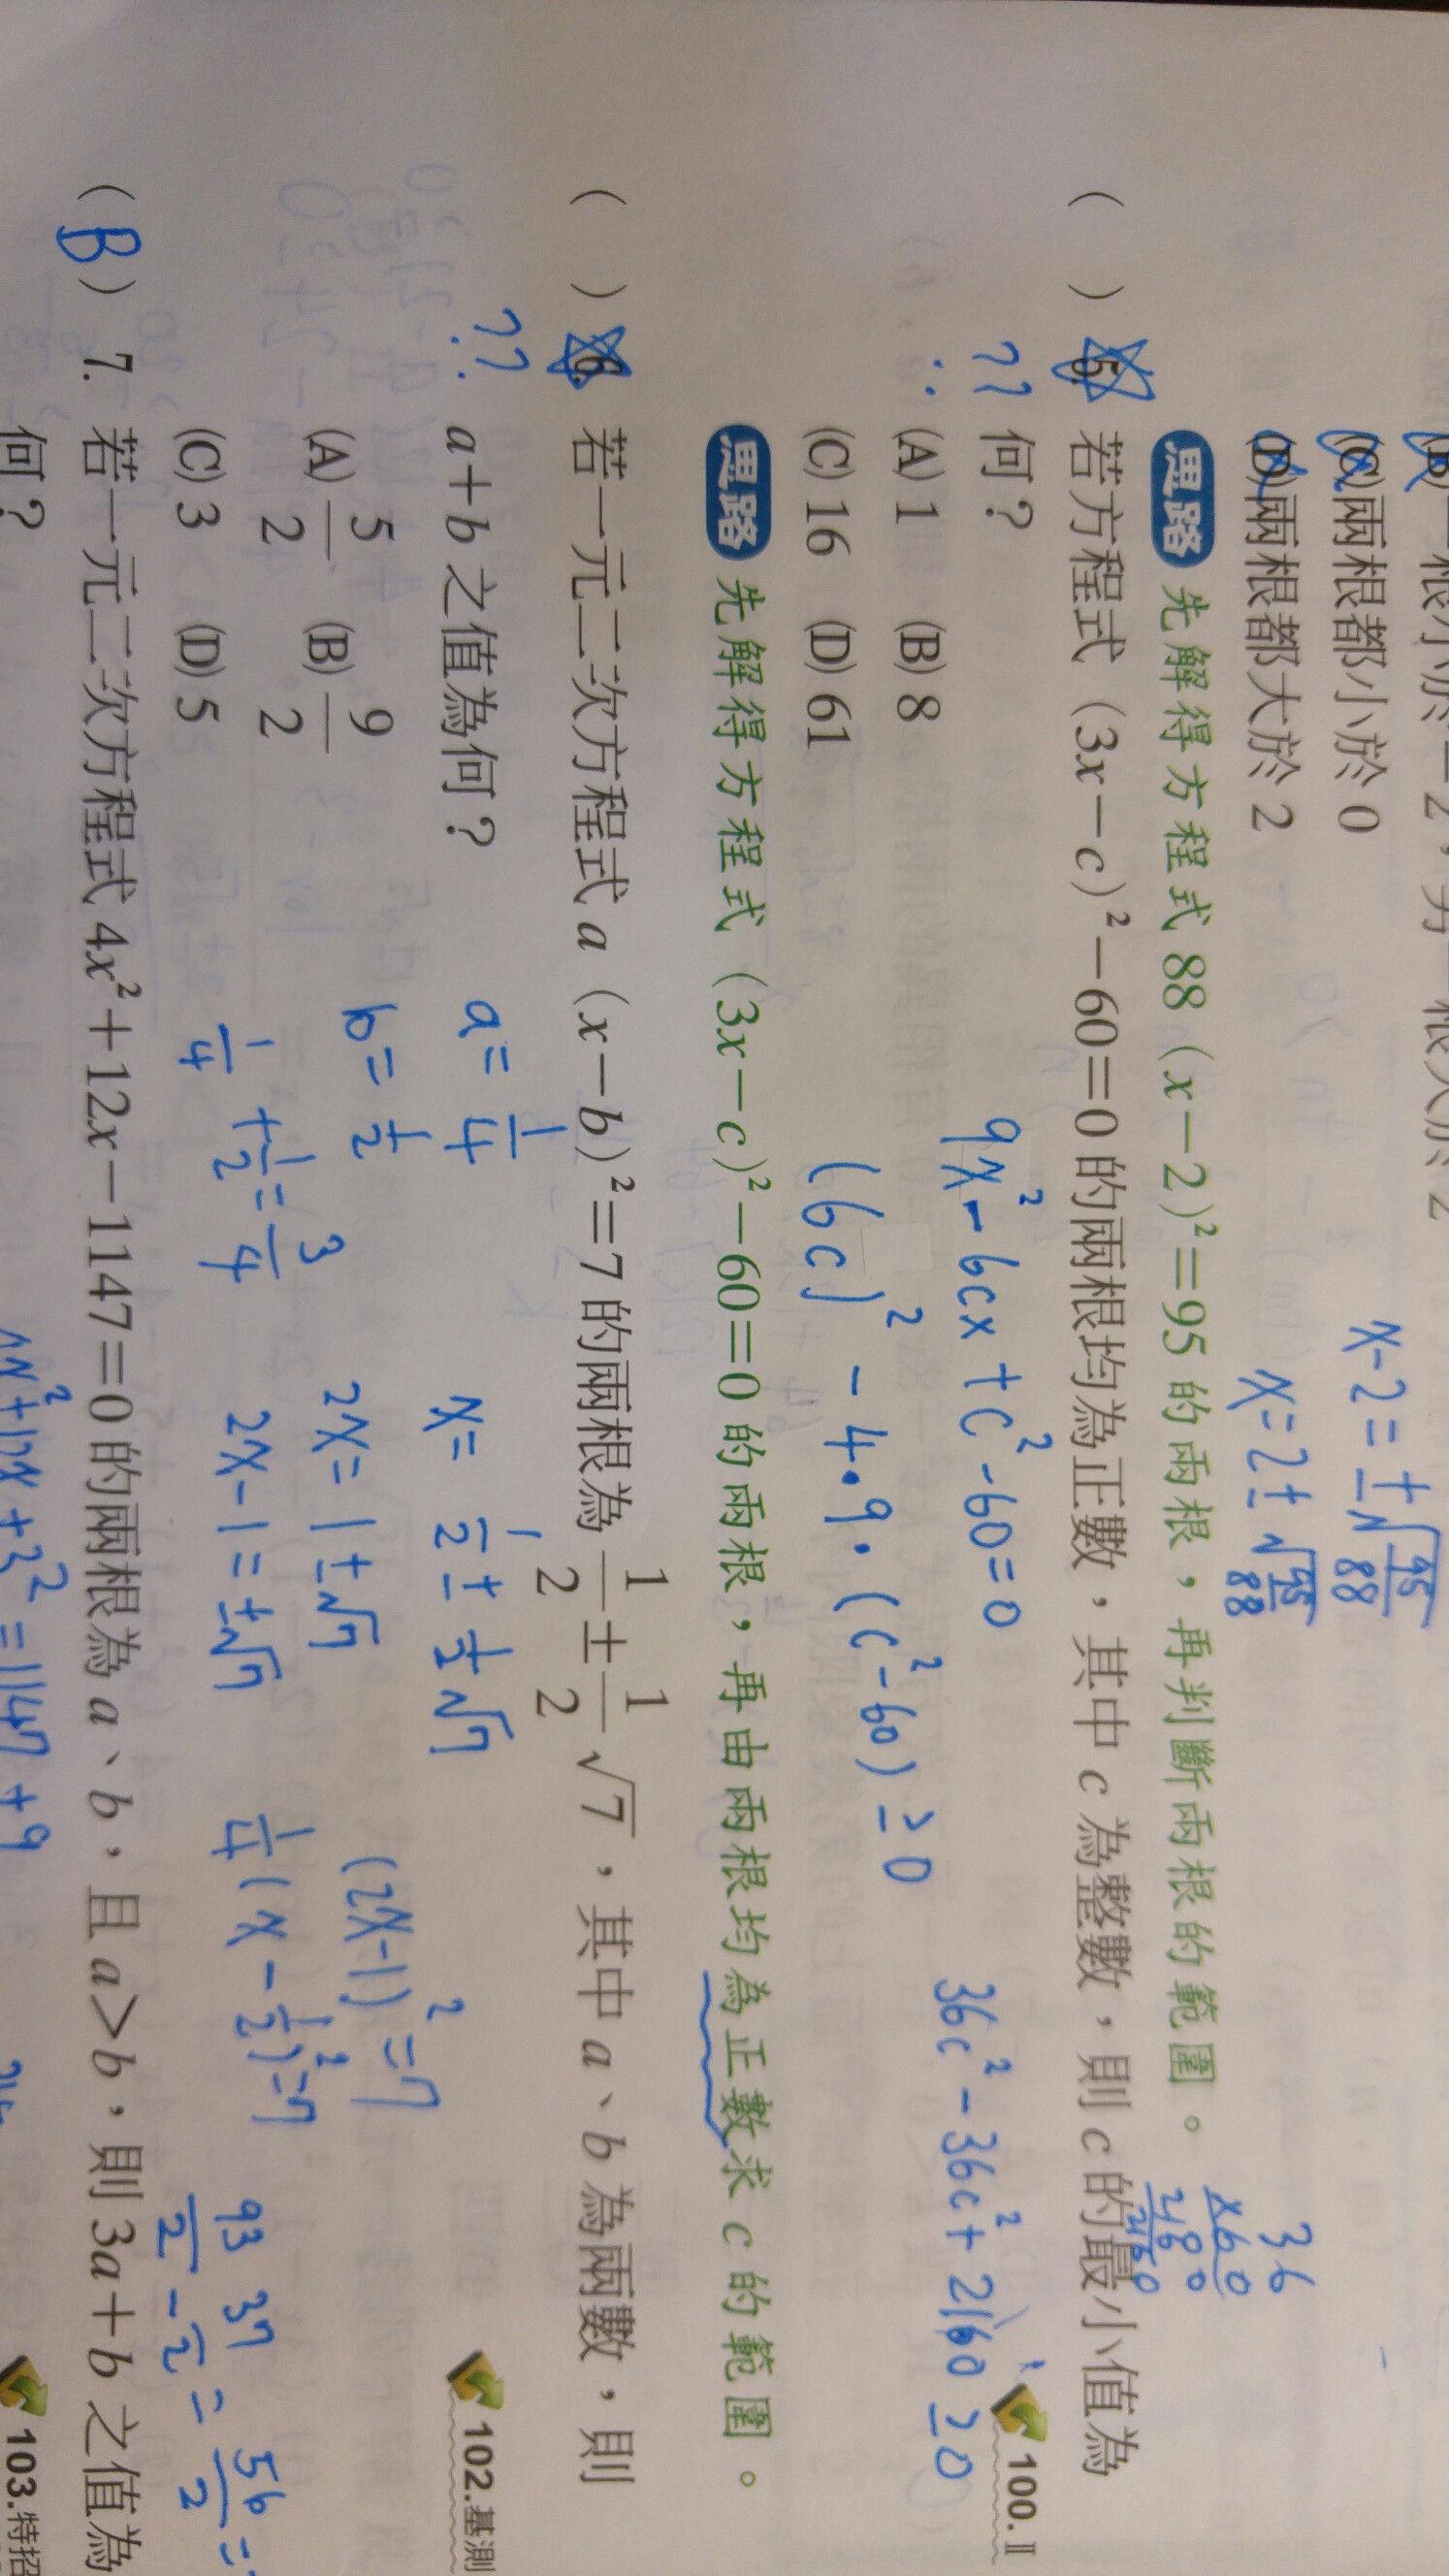 (C)兩根都小於 0
(D)兩根都大於 2
x-2=±√(95/88)
x=2±√(95/88)
思路 先解得方程式 88(x-2)²=95 的兩根,再判斷兩根的範圍。
36
×60
2160
( ) 5. 若方程式(3x-c)²-60=0 的兩根均為正數,其中 c 為整數,則 c 的最小值為
?? 何?
100.Ⅱ
(A) 1 (B) 8
(C) 16 (D) 61
9x²-6cx+c²-60=0
(6c)²-4·9·(c²-60)≥0
36c²-36c²+2160≥0
思路 先解得方程式(3x-c)²-60=0 的兩根,再由兩根均為正數求 c 的範圍。
( ) 6. 若一元二次方程式 a(x-b)²=7 的兩根為 1/2±1/2√7,其中 a、b 為兩數,則
?? a+b 之值為何?
102.基測
(A) 5/2 (B) 9/2
(C) 3 (D) 5
a=1/4
b=1/2
1/4+1/2=3/4
x=1/2±1/2√7
2x=1±√7
2x-1=±√7
(2x-1)²=7
1/4(x-1/2)²=7
93/2-37/2=56/2=
( B ) 7. 若一元二次方程式 4x²+12x-1147=0 的兩根為 a、b,且 a>b,則 3a+b 之值為
何?
103.特招
+12x+3²=1147+9